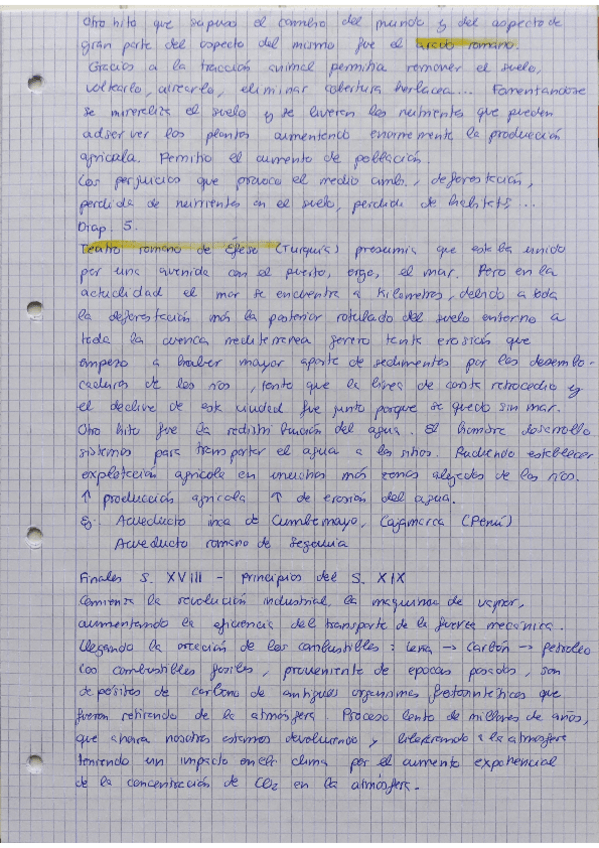 Otro hito que supuso el cambio del mundo y del aspecto de
gran parte del aspecto del mismo fue el arado romano.
Gracias a la tracción animal permitia remover el suelo,
voltearlo, airearlo, eliminar cobertura herbacea... Fomentandose
se mineraliza el suelo y se liveren los nutrientes que pueden
adserver las plantas aumentendo enormemente la producción
agricala. Permitio el aumento de población.
Los perjuicios que provoca el medio amb., deforestación,
perdida de nutrientes en el suelo, perdida de habitats...
Diap. 5.
Teatro romano de Éfeso (Turquía) presumia que estaba unido
por una avenida con el puerto, ergo, el mar. Pero en la
actualidad el mar se encuentra a Kilometros, debido a toda
la deforestación más la posterior roturado del suelo entorno a
toda la cuenca mediterranea genero tanta erosión que
empezo a haber mayor aporte de sedimentos por las desembo-
caduras de los rios, tanto que la linea de costa retrocedio y
el declive de esta ciudad fue junto porque se quedo sin mar.
Otro hito fue la redistribución del agua. El hombre desarrollo
sistemas para transportar el agua a los sitios. Pudiendo establecer
explotación agricola en muchas más zonas alejadas de los rios.
↑ producción agricola ↑ de erosión del agua.
Ej. Acueducto inca de Cumbemayo, Cajamarca (Perú)
Acueducto romano de Segovia
Finales S. XVIII - principios del S. XIX
Comienza la revolución industrial, la maquina de vapor,
aumentando la eficiencia del transporte de la fuerza mecánica.
Llegando la de los combustibles: Lena → Carbón → petroleo
Los combustibles fosiles, proveniente de epocas pasadas, son
depósitos de carbono de antiguos organismos fotosinteticos que
fueron retirando de la atmósfera. Proceso lento de millores de años,
que ahora nosotros estamos devolviendo y liberando a la atmosfera
teniendo un impacto en el clima por el aumento exponencial
de la concentración de CO₂ en la atmósfera.